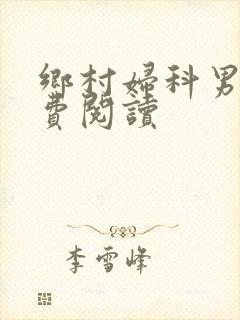 鄉村婦科男
費閱讀
李雪峰